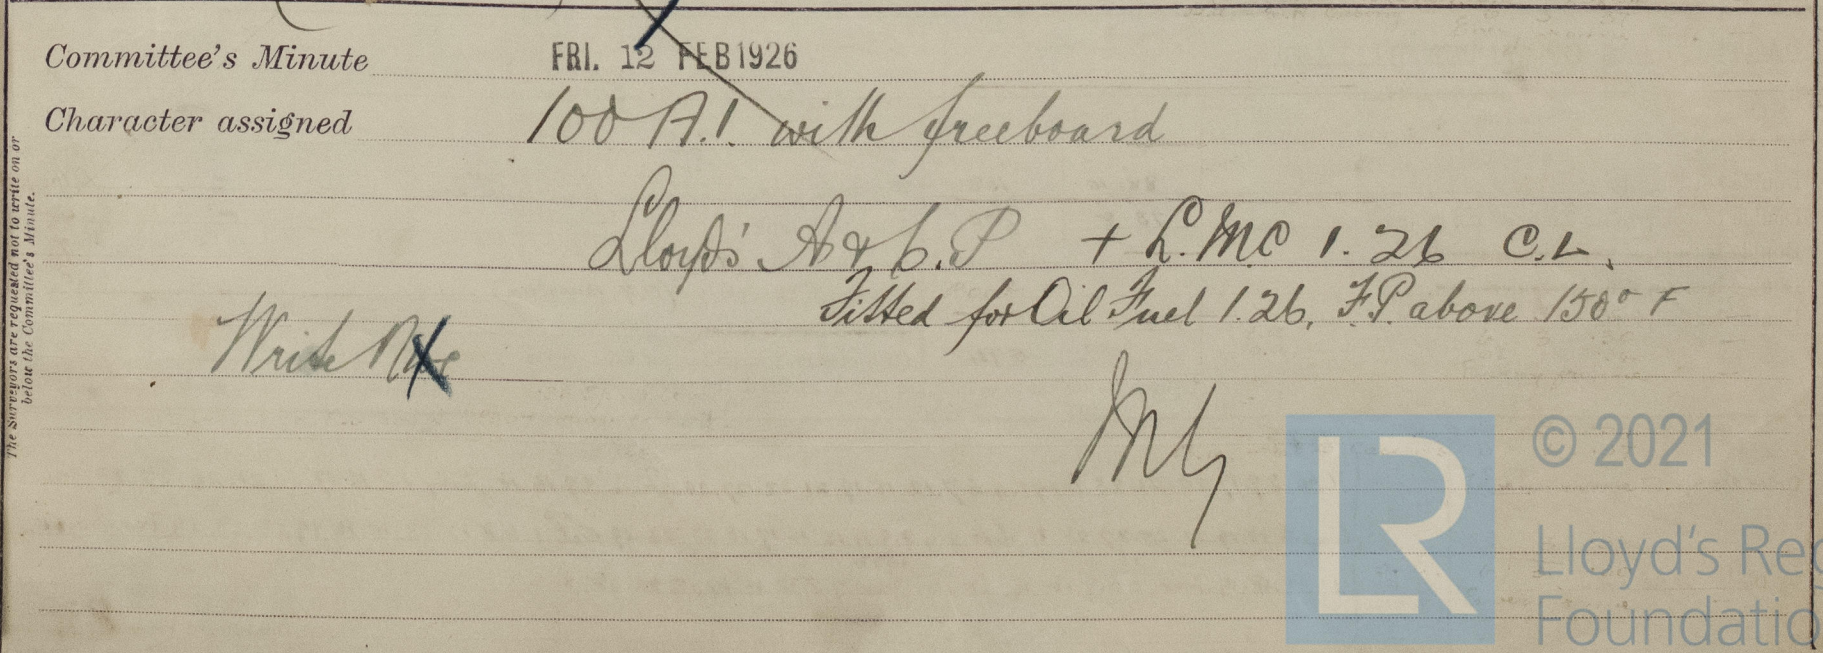 Committee's Minute FRI. 12 FEB 1926
Character assigned 100 A.1 with freeboard
Lloyd's A & C. P + L.M.C 1.26 C.L.
Fitted for Oil Fuel 1.26. F.P. above 150° F
Write
The Surveyors are requested not to write on or
below the Committee's Minute.
LR
© 2021
Lloyd's Reg
Foundatio